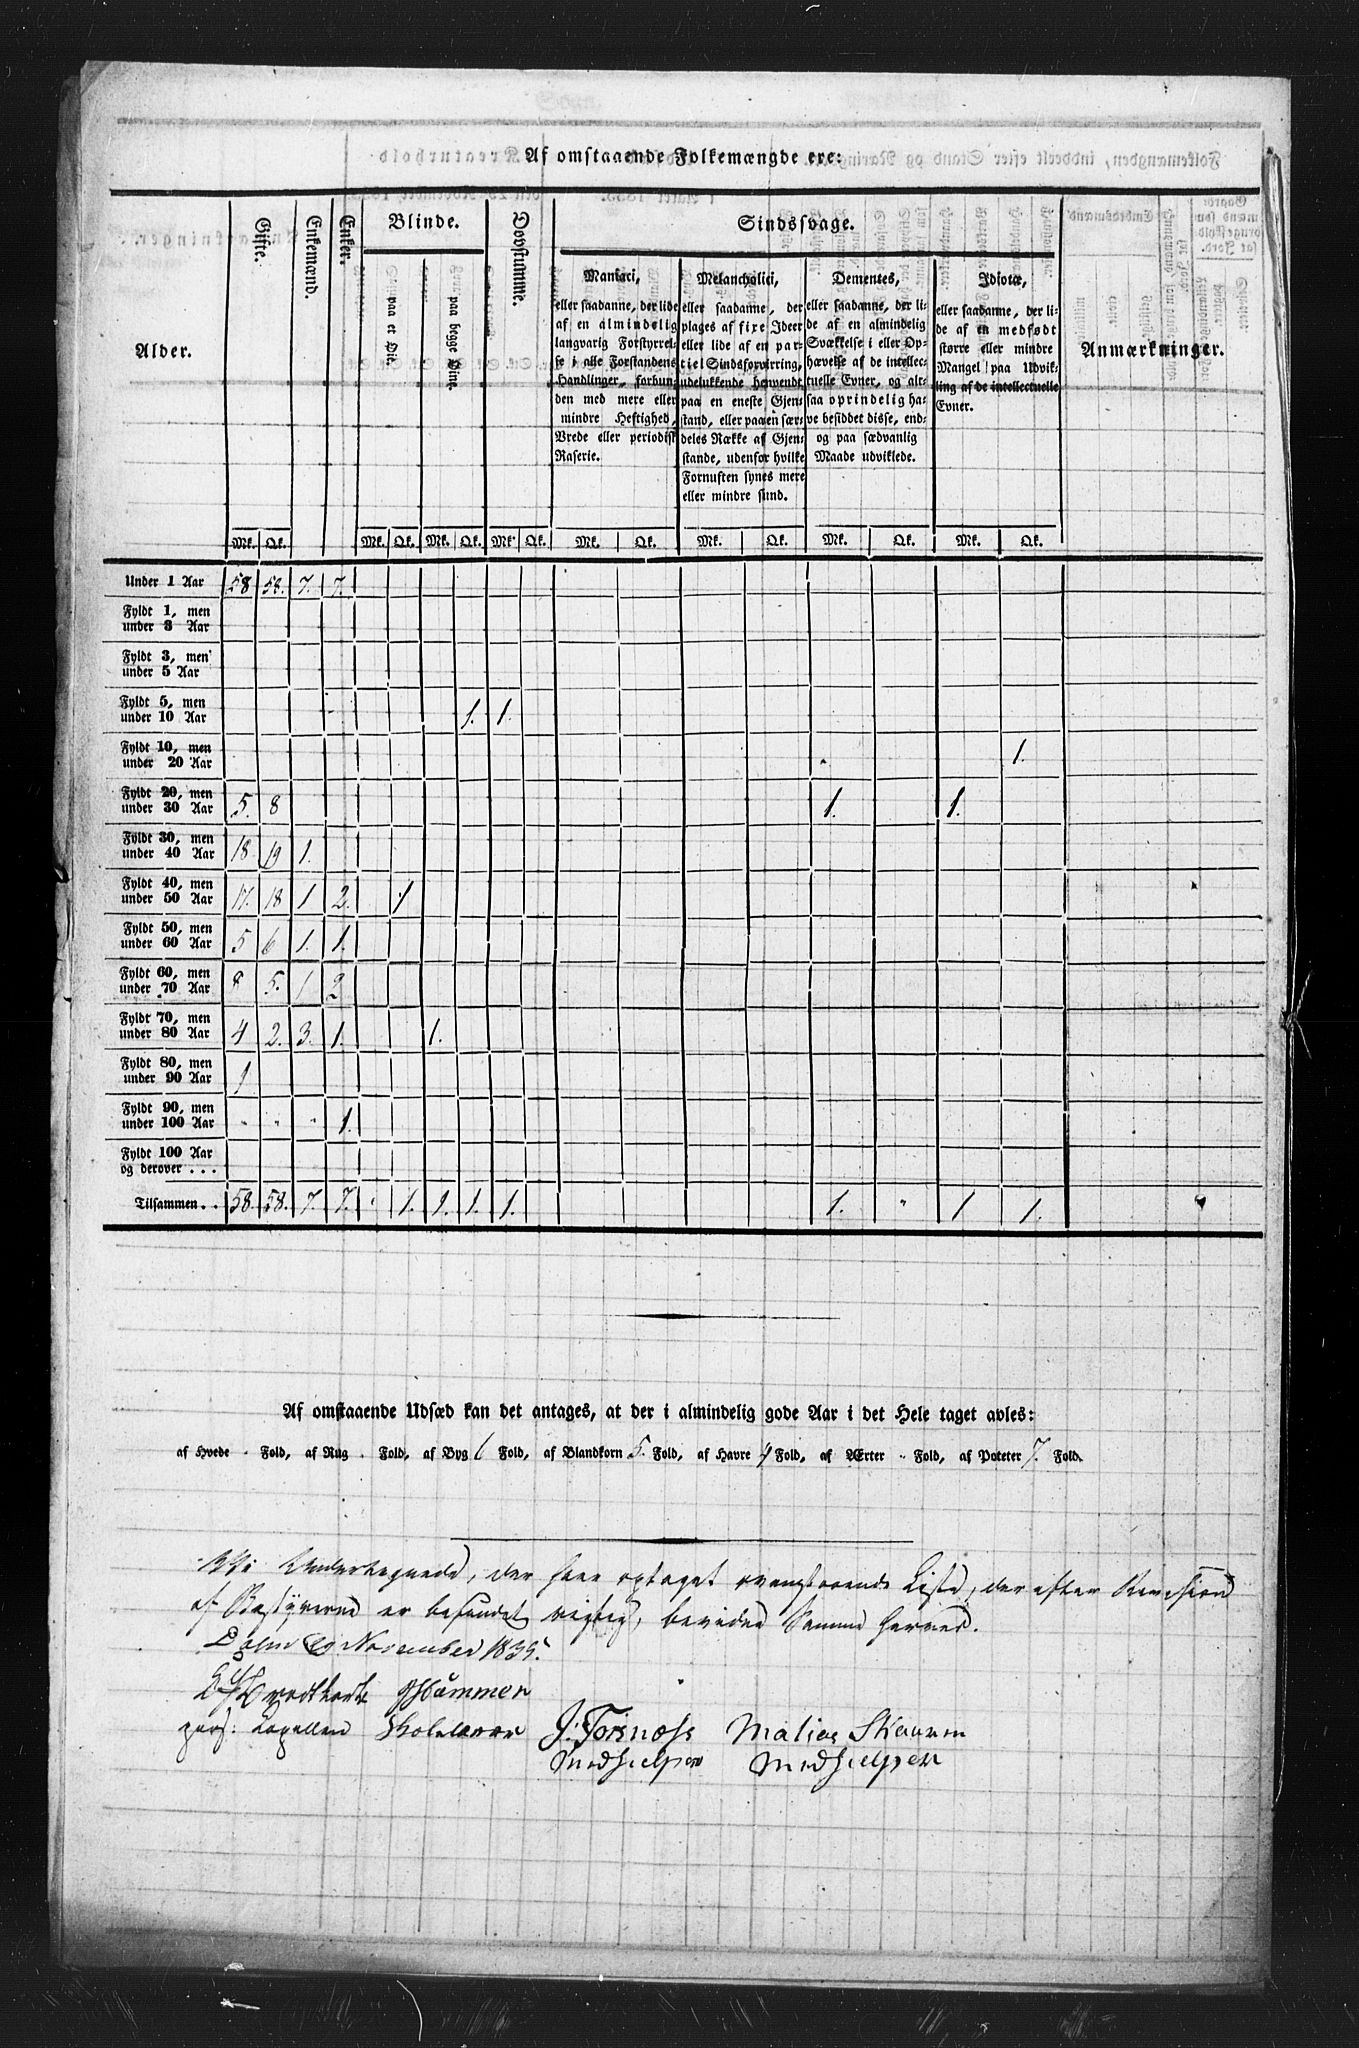 Af omstaaende Folkemængde ere:
Alder. Gifte. Enkemænd. Enker. Blinde. Døvstumme. Sindssvage. Anmærkninger.
paa et Øie. paa begge Øine.
Maniaci,
eller saadanne, der lide
af en almindelig
langvarig Forstyrrel-
se i alle Forstandens
Handlinger, forbun-
den med mere eller
mindre Heftighed,
Vrede eller periodisk
Raserie.
Melancholici,
eller saadanne, der
plages af fixe Ideer
eller lide af en par-
tiel Sindsforvirring,
udelukkende henvendt
paa en eneste Gjen-
stand, eller paa en sær-
deles Række af Gjen-
stande, udenfor hvilke
Fornuften synes mere
eller mindre sund.
Dementes,
eller saadanne, der li-
de af en almindelig
Svækkelse i eller Op-
hævelse af de intellec-
tuelle Evner, og alt-
saa oprindelig ha-
ve besiddet disse, end-
og paa sædvanlig
Maade udviklede.
Idiotæ,
eller saadanne, der li-
de af en medfødt
større eller mindre
Mangel paa Udvik-
ling af de intellectuelle
Evner.
Mk. Qk. Mk. Qk. Mk. Qk. Mk. Qk. Mk. Qk. Mk. Qk. Mk. Qk. Mk. Qk.
Under 1 Aar 58 58. 7. 7.
Fyldt 1, men
under 3 Aar
Fyldt 3, men
under 5 Aar
Fyldt 5, men
under 10 Aar 1. 1.
Fyldt 10, men
under 20 Aar 1.
Fyldt 20, men
under 30 Aar 5. 8 1. 1.
Fyldt 30, men
under 40 Aar 18. 19 1.
Fyldt 40, men
under 50 Aar 17. 18 1 2. 1
Fyldt 50, men
under 60 Aar 5 6 1. 1.
Fyldt 60, men
under 70 Aar 8 5. 1 2
Fyldt 70, men
under 80 Aar 4 2. 3. 1. 1.
Fyldt 80, men
under 90 Aar 1
Fyldt 90, men
under 100 Aar " " " 1.
Fyldt 100 Aar
og derover . . .
Tilsammen . . 58. 58. 7. 7. " 1. 1. 1. 1. 1. " 1 1.
Af omstaaende Udsæd kan det antages, at der i almindelig gode Aar i det Hele taget avles:
af Hvede " Fold, af Rug " Fold, af Byg 6 Fold, af Blandkorn 5. Fold, af Havre 4 Fold, af Ærter " Fold, af Poteter 7. Fold.
Vi Undertegnede, der have optaget ovenstaaende Liste, der efter Revision
af Bestyrerne er befundet rigtig, bevidne Samme herved.
November 1835.
Hammer
pers: Capellan Skolelærer J: Torsnæss Matias Skaaren
Medhielper Medhielper